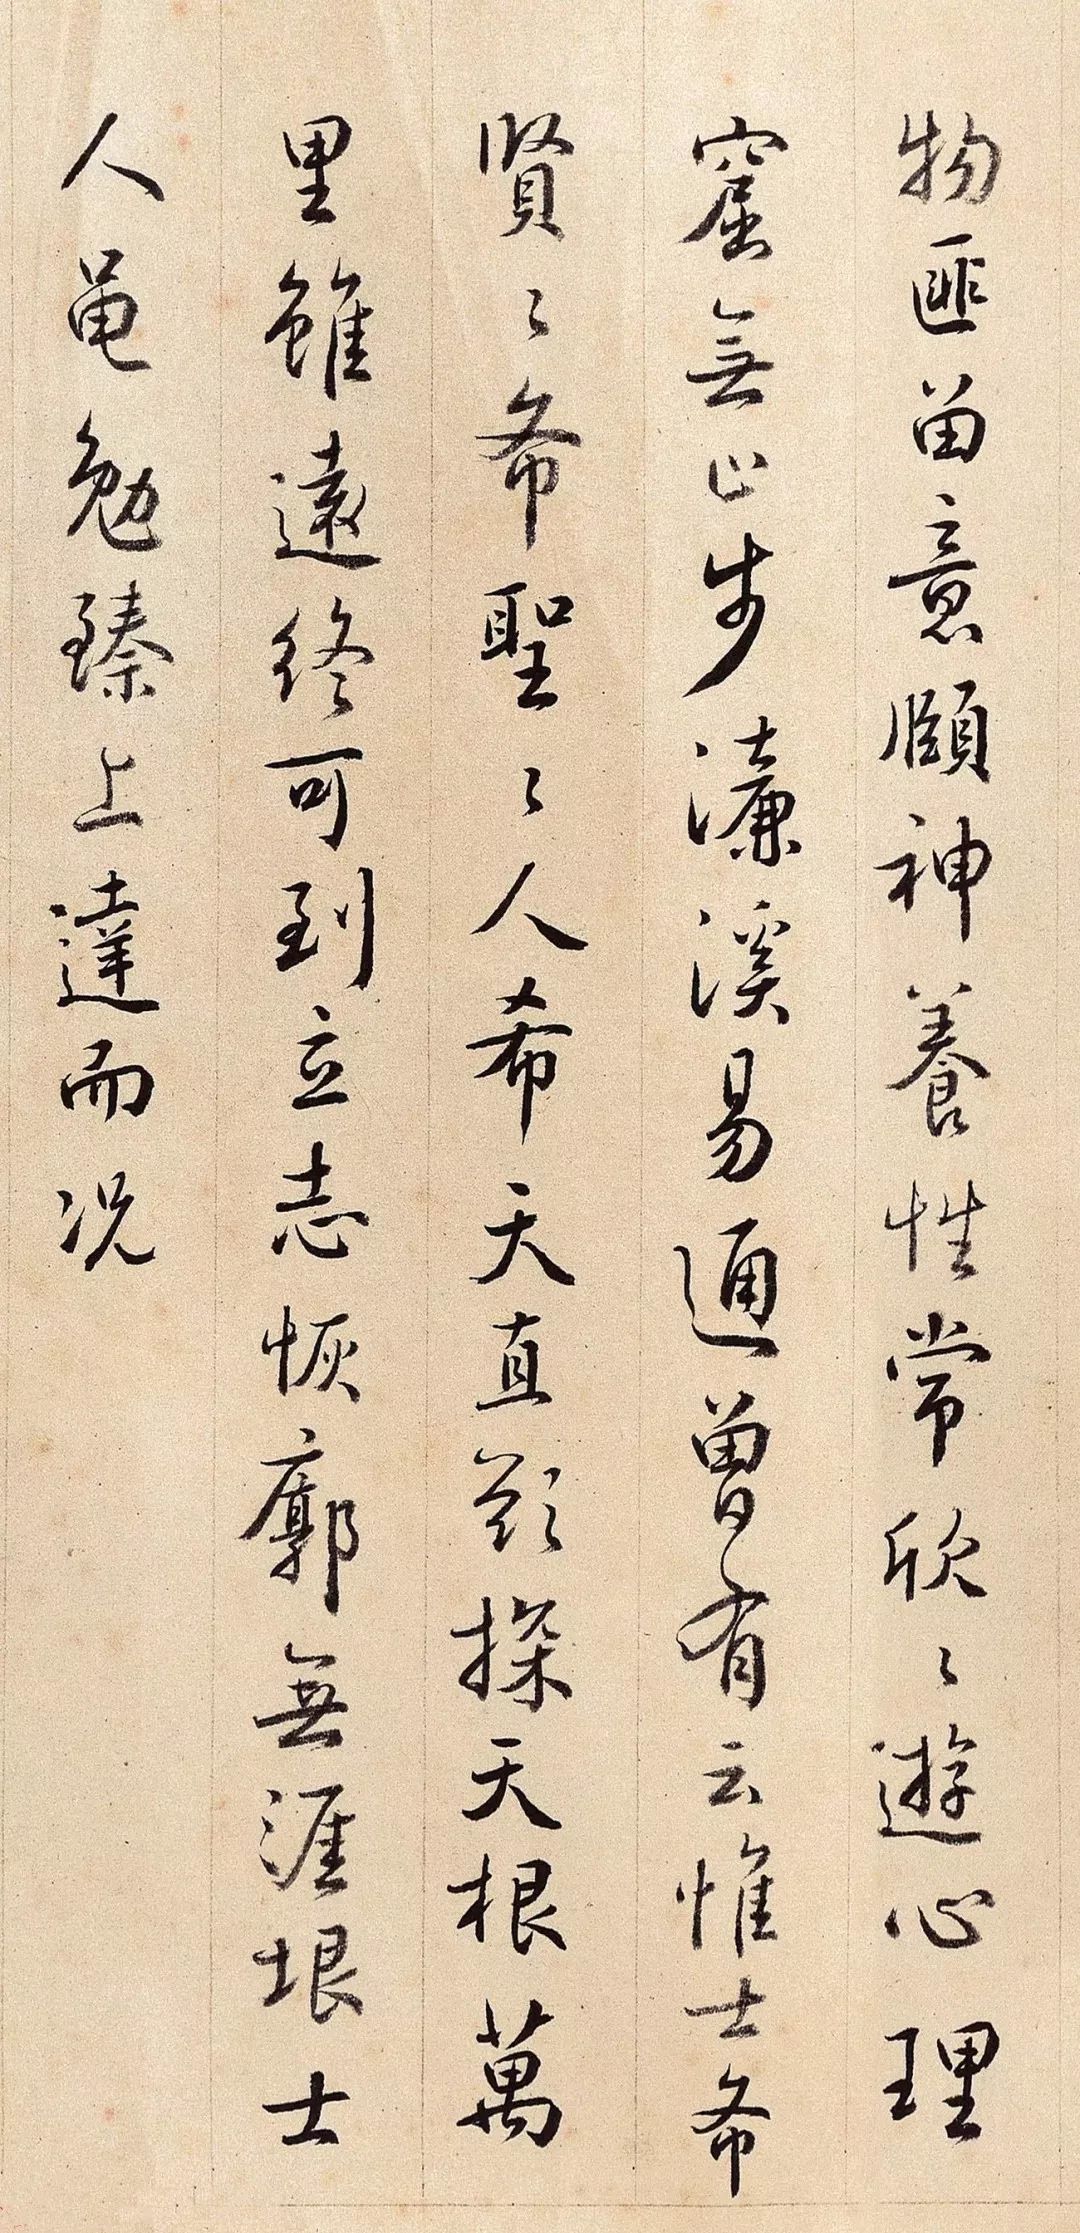 物匪留意頤神養性常欣〻遊心理
窟無止步濂溪易通曾有云惟士希
賢〻希聖〻人希天直欲探天根萬
里雖遠終可到立志恢廓無涯垠士
人黽勉臻上達而況